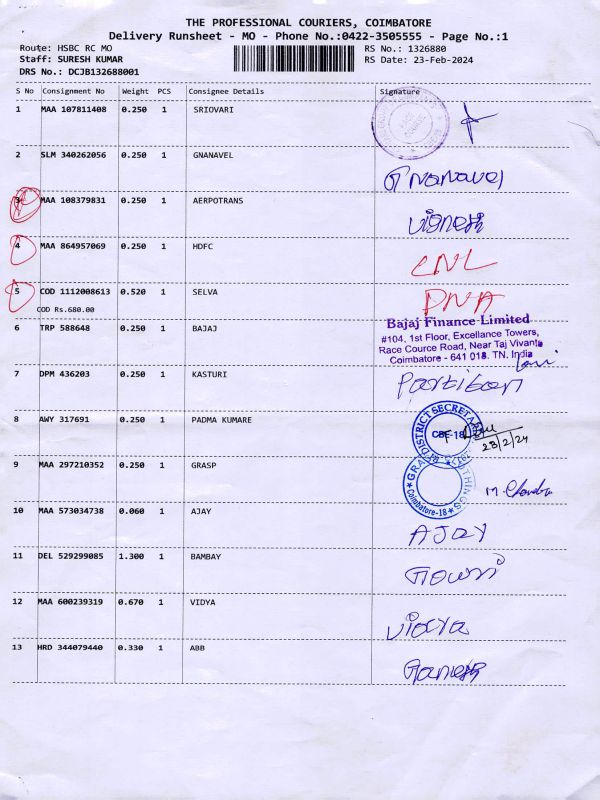 THE PROFESSIONAL COURIERS, COIMBATORE
Delivery Runsheet - MO - Phone No.:0422-3505555 - Page No.:1
Route: HSBC RC MO RS No.: 1326880
Staff: SURESH KUMAR RS Date: 23-Feb-2024
DRS No.: DCJB132688001
S No Consignment No Weight PCS Consignee Details Signature
1 MAA 107811408 0.250 1 SRIOVARI
2 SLM 340262056 0.250 1 GNANAVEL Gnanavel
3 MAA 108379831 0.250 1 AERPOTRANS Vignesh
4 MAA 864957069 0.250 1 HDFC CNL
5 COD 1112008613 0.520 1 SELVA DNA
COD Rs.680.00
Bajaj Finance Limited
6 TRP 588648 0.250 1 BAJAJ #104, 1st Floor, Excellance Towers,
Race Cource Road, Near Taj Vivanta
Coimbatore - 641 018. TN. India
7 DPM 436203 0.250 1 KASTURI Partiban
8 AWY 317691 0.250 1 PADMA KUMARE DISTRICT SECRETA CBE-18 23/2/24
9 MAA 297210352 0.250 1 GRASP Coimbatore-18 M. Chandra
10 MAA 573034738 0.060 1 AJAY AJAY
11 DEL 529299085 1.300 1 BAMBAY கௌரி
12 MAA 600239319 0.670 1 VIDYA Vidya
13 HRD 344079440 0.330 1 ABB Ganesh